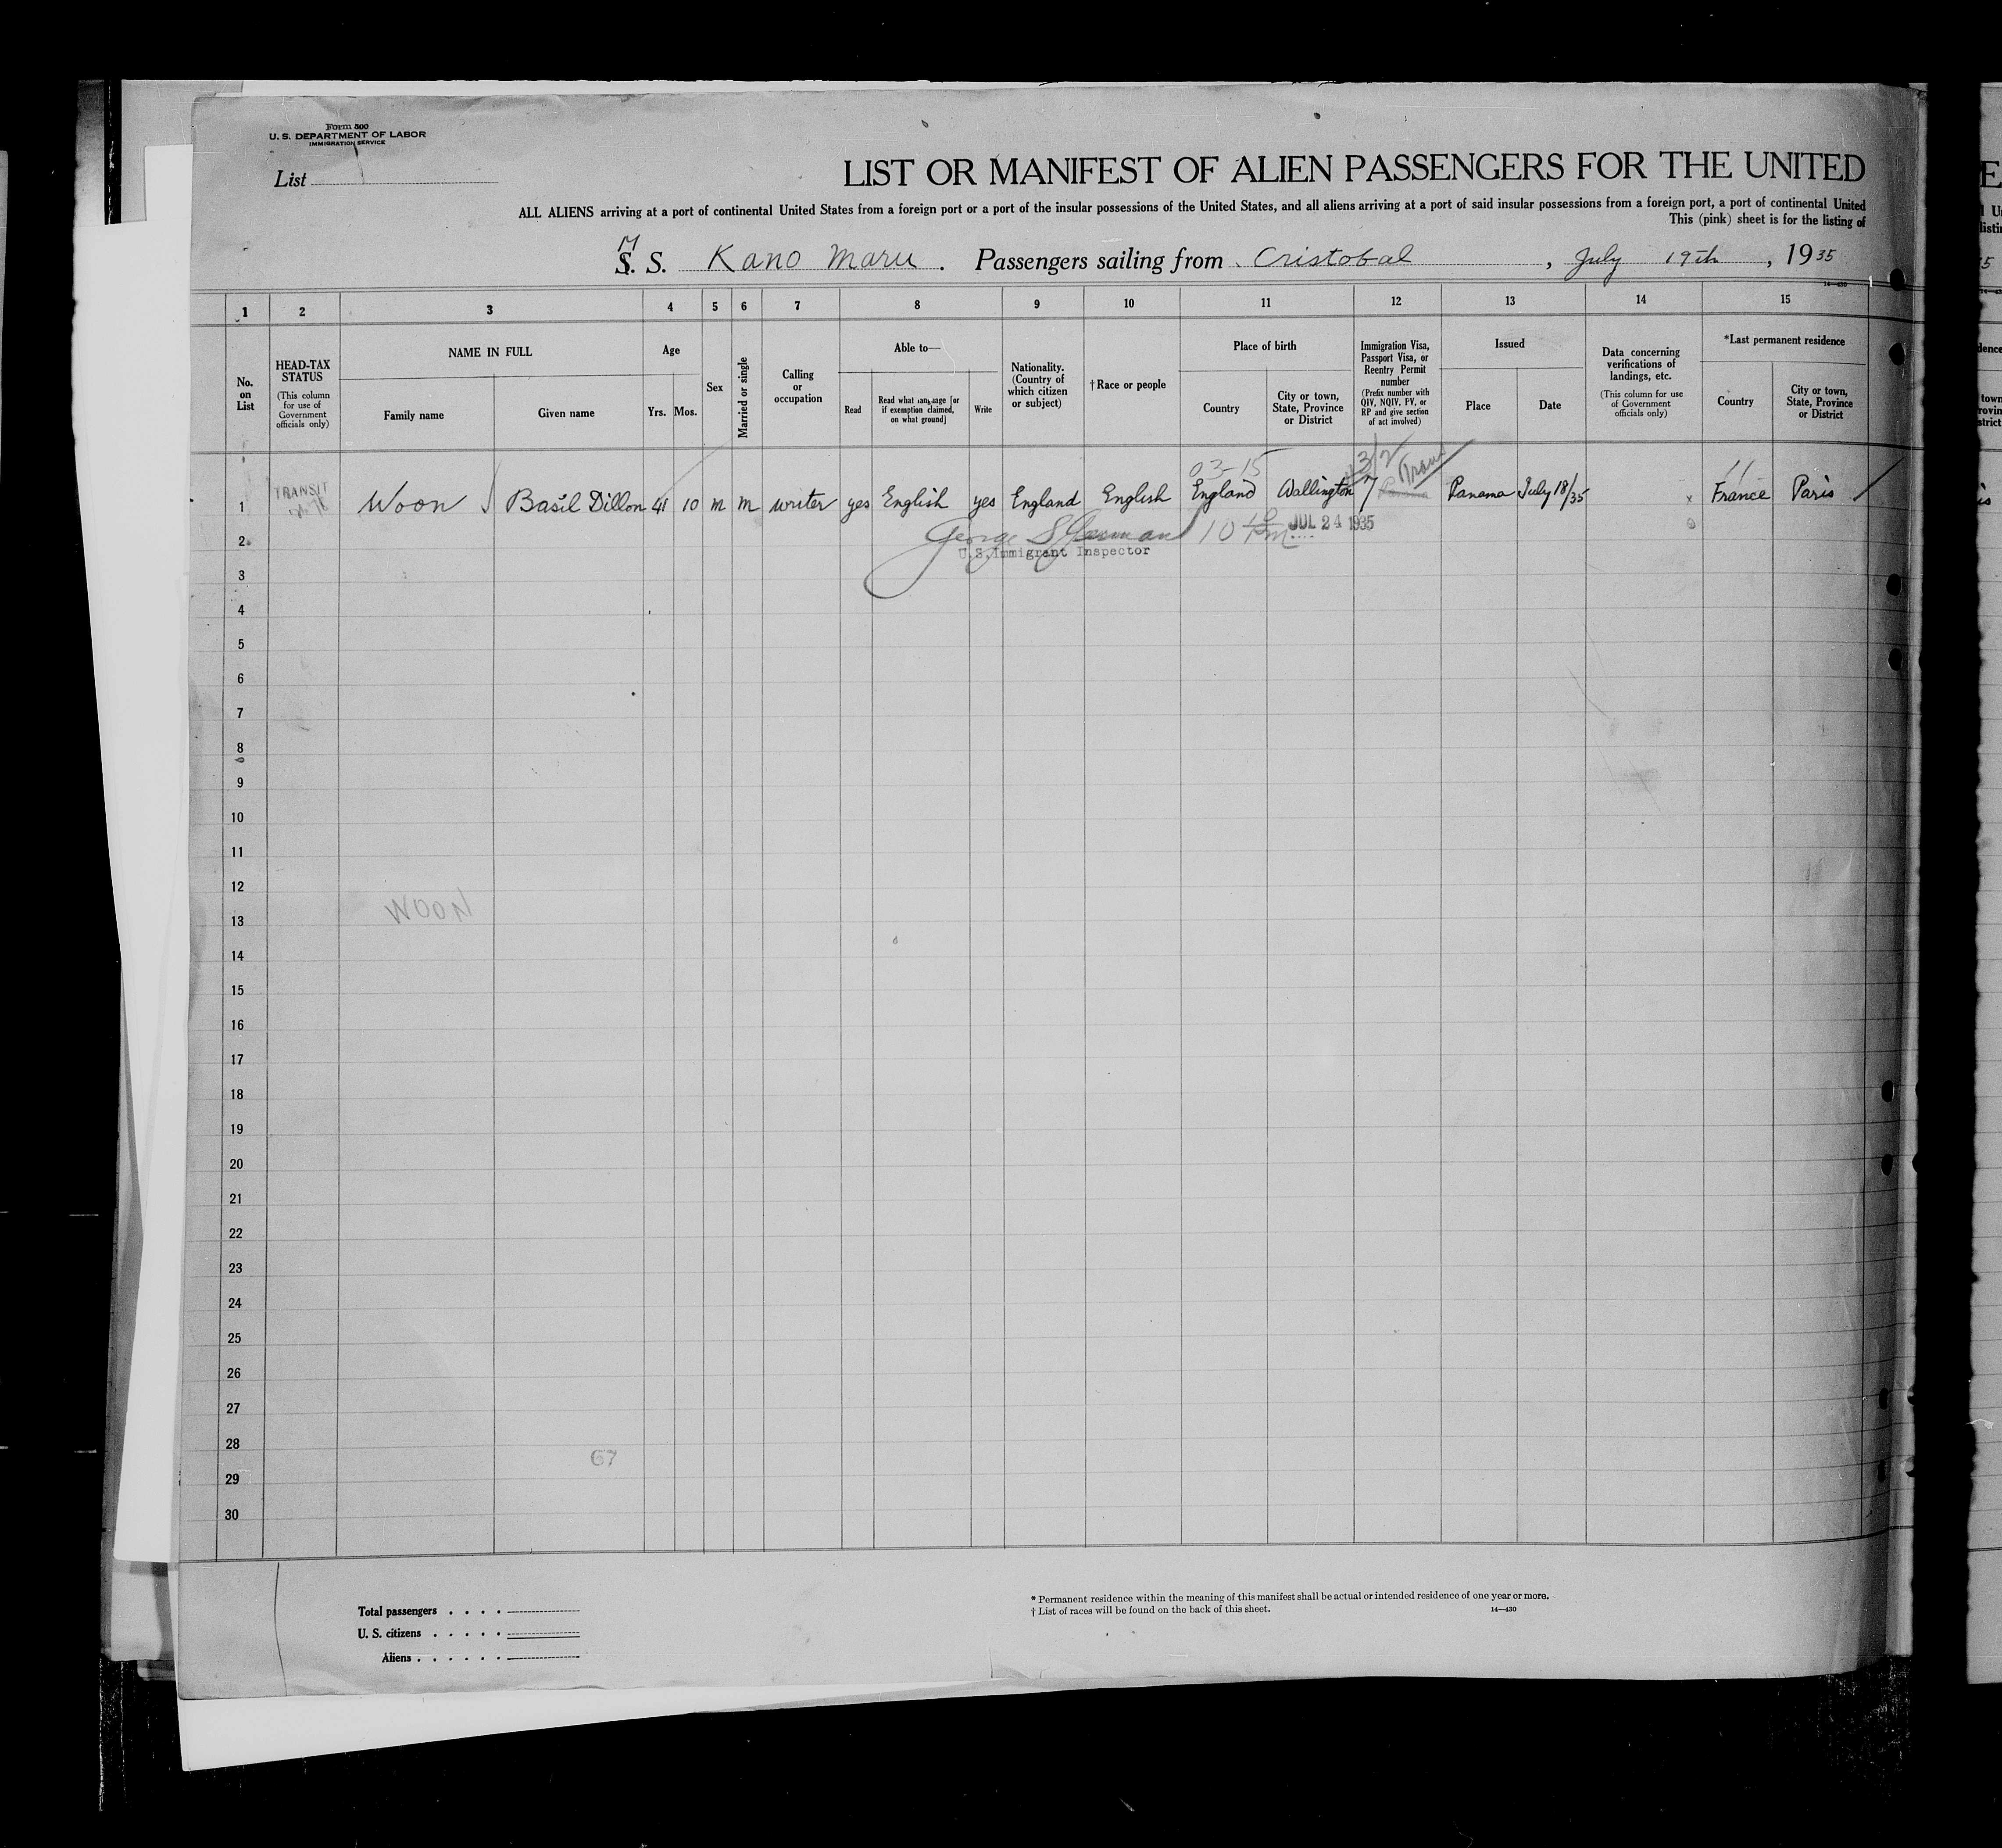 Form 500
U. S. DEPARTMENT OF LABOR
IMMIGRATION SERVICE
List
LIST OR MANIFEST OF ALIEN PASSENGERS FOR THE UNITED
ALL ALIENS arriving at a port of continental United States from a foreign port or a port of the insular possessions of the United States, and all aliens arriving at a port of said insular possessions from a foreign port, a port of continental United
This (pink) sheet is for the listing of
M
S. S. Kano Maru. Passengers sailing from Cristobal, July 19th, 1935
14—430
1 2 3 4 5 6 7 8 9 10 11 12 13 14 15
No. on List
HEAD-TAX STATUS
(This column for use of Government officials only)
NAME IN FULL
Family name
Given name
Age
Yrs. Mos.
Sex
Married or single
Calling or occupation
Able to—
Read
Read what language [or if exemption claimed, on what ground]
Write
Nationality. (Country of which citizen or subject)
†Race or people
Place of birth
Country
City or town, State, Province or District
Immigration Visa, Passport Visa, or Reentry Permit number
(Prefix number with QIV, NQIV, PV, or RP and give section of act involved)
Issued
Place
Date
Data concerning verifications of landings, etc.
(This column for use of Government officials only)
*Last permanent residence
Country
City or town, State, Province or District
03-15 Trans
TRANSIT
1 Woon Basil Dillon 41 10 m m writer yes English yes England English England Wallington Panama July 18/35 France Paris
George 10 JUL 24 1935
U.S. Immigrant Inspector
2
3
4
5
6
7
8
9
10
11
12
WOON
13
14
15
16
17
18
19
20
21
22
23
24
25
26
27
28
67
29
30
Total passengers
U. S. citizens
Aliens
* Permanent residence within the meaning of this manifest shall be actual or intended residence of one year or more.
† List of races will be found on the back of this sheet.
14—430